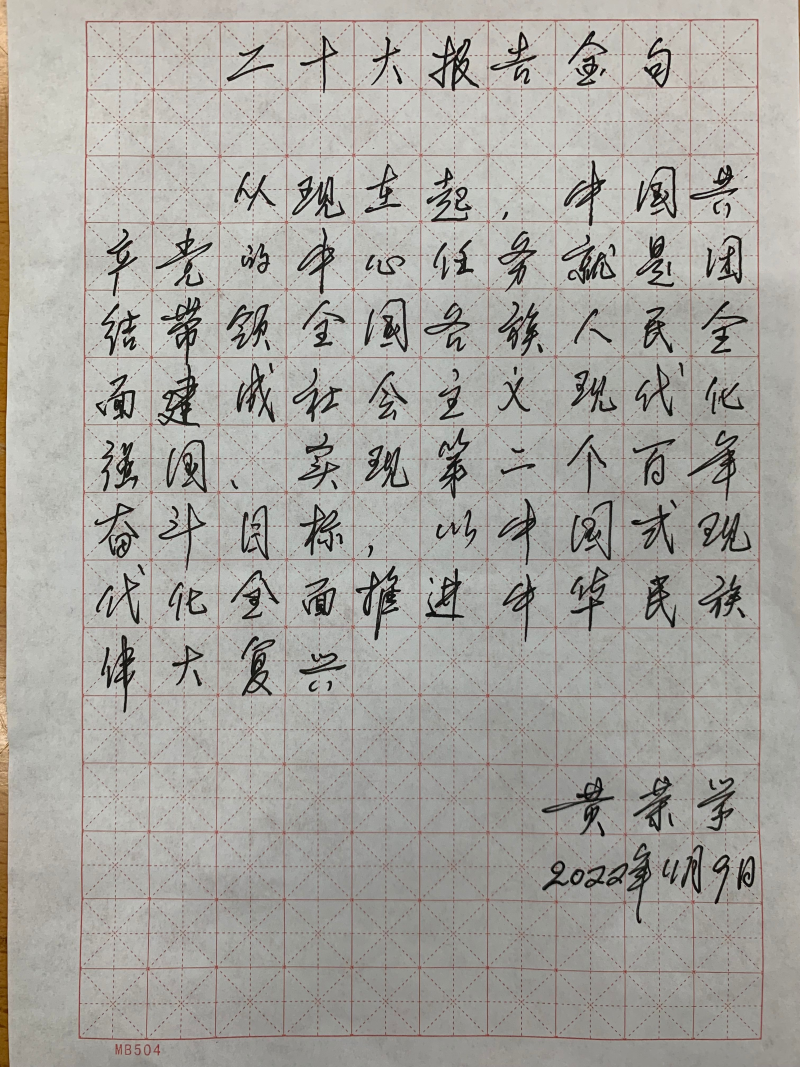 二十大报告金句
从现在起，中国共
产党的中心任务就是团
结带领全国各族人民全
面建成社会主义现代化
强国、实现第二个百年
奋斗目标，以中国式现
代化全面推进中华民族
伟大复兴
黄荣学
2022年11月9日
MB504